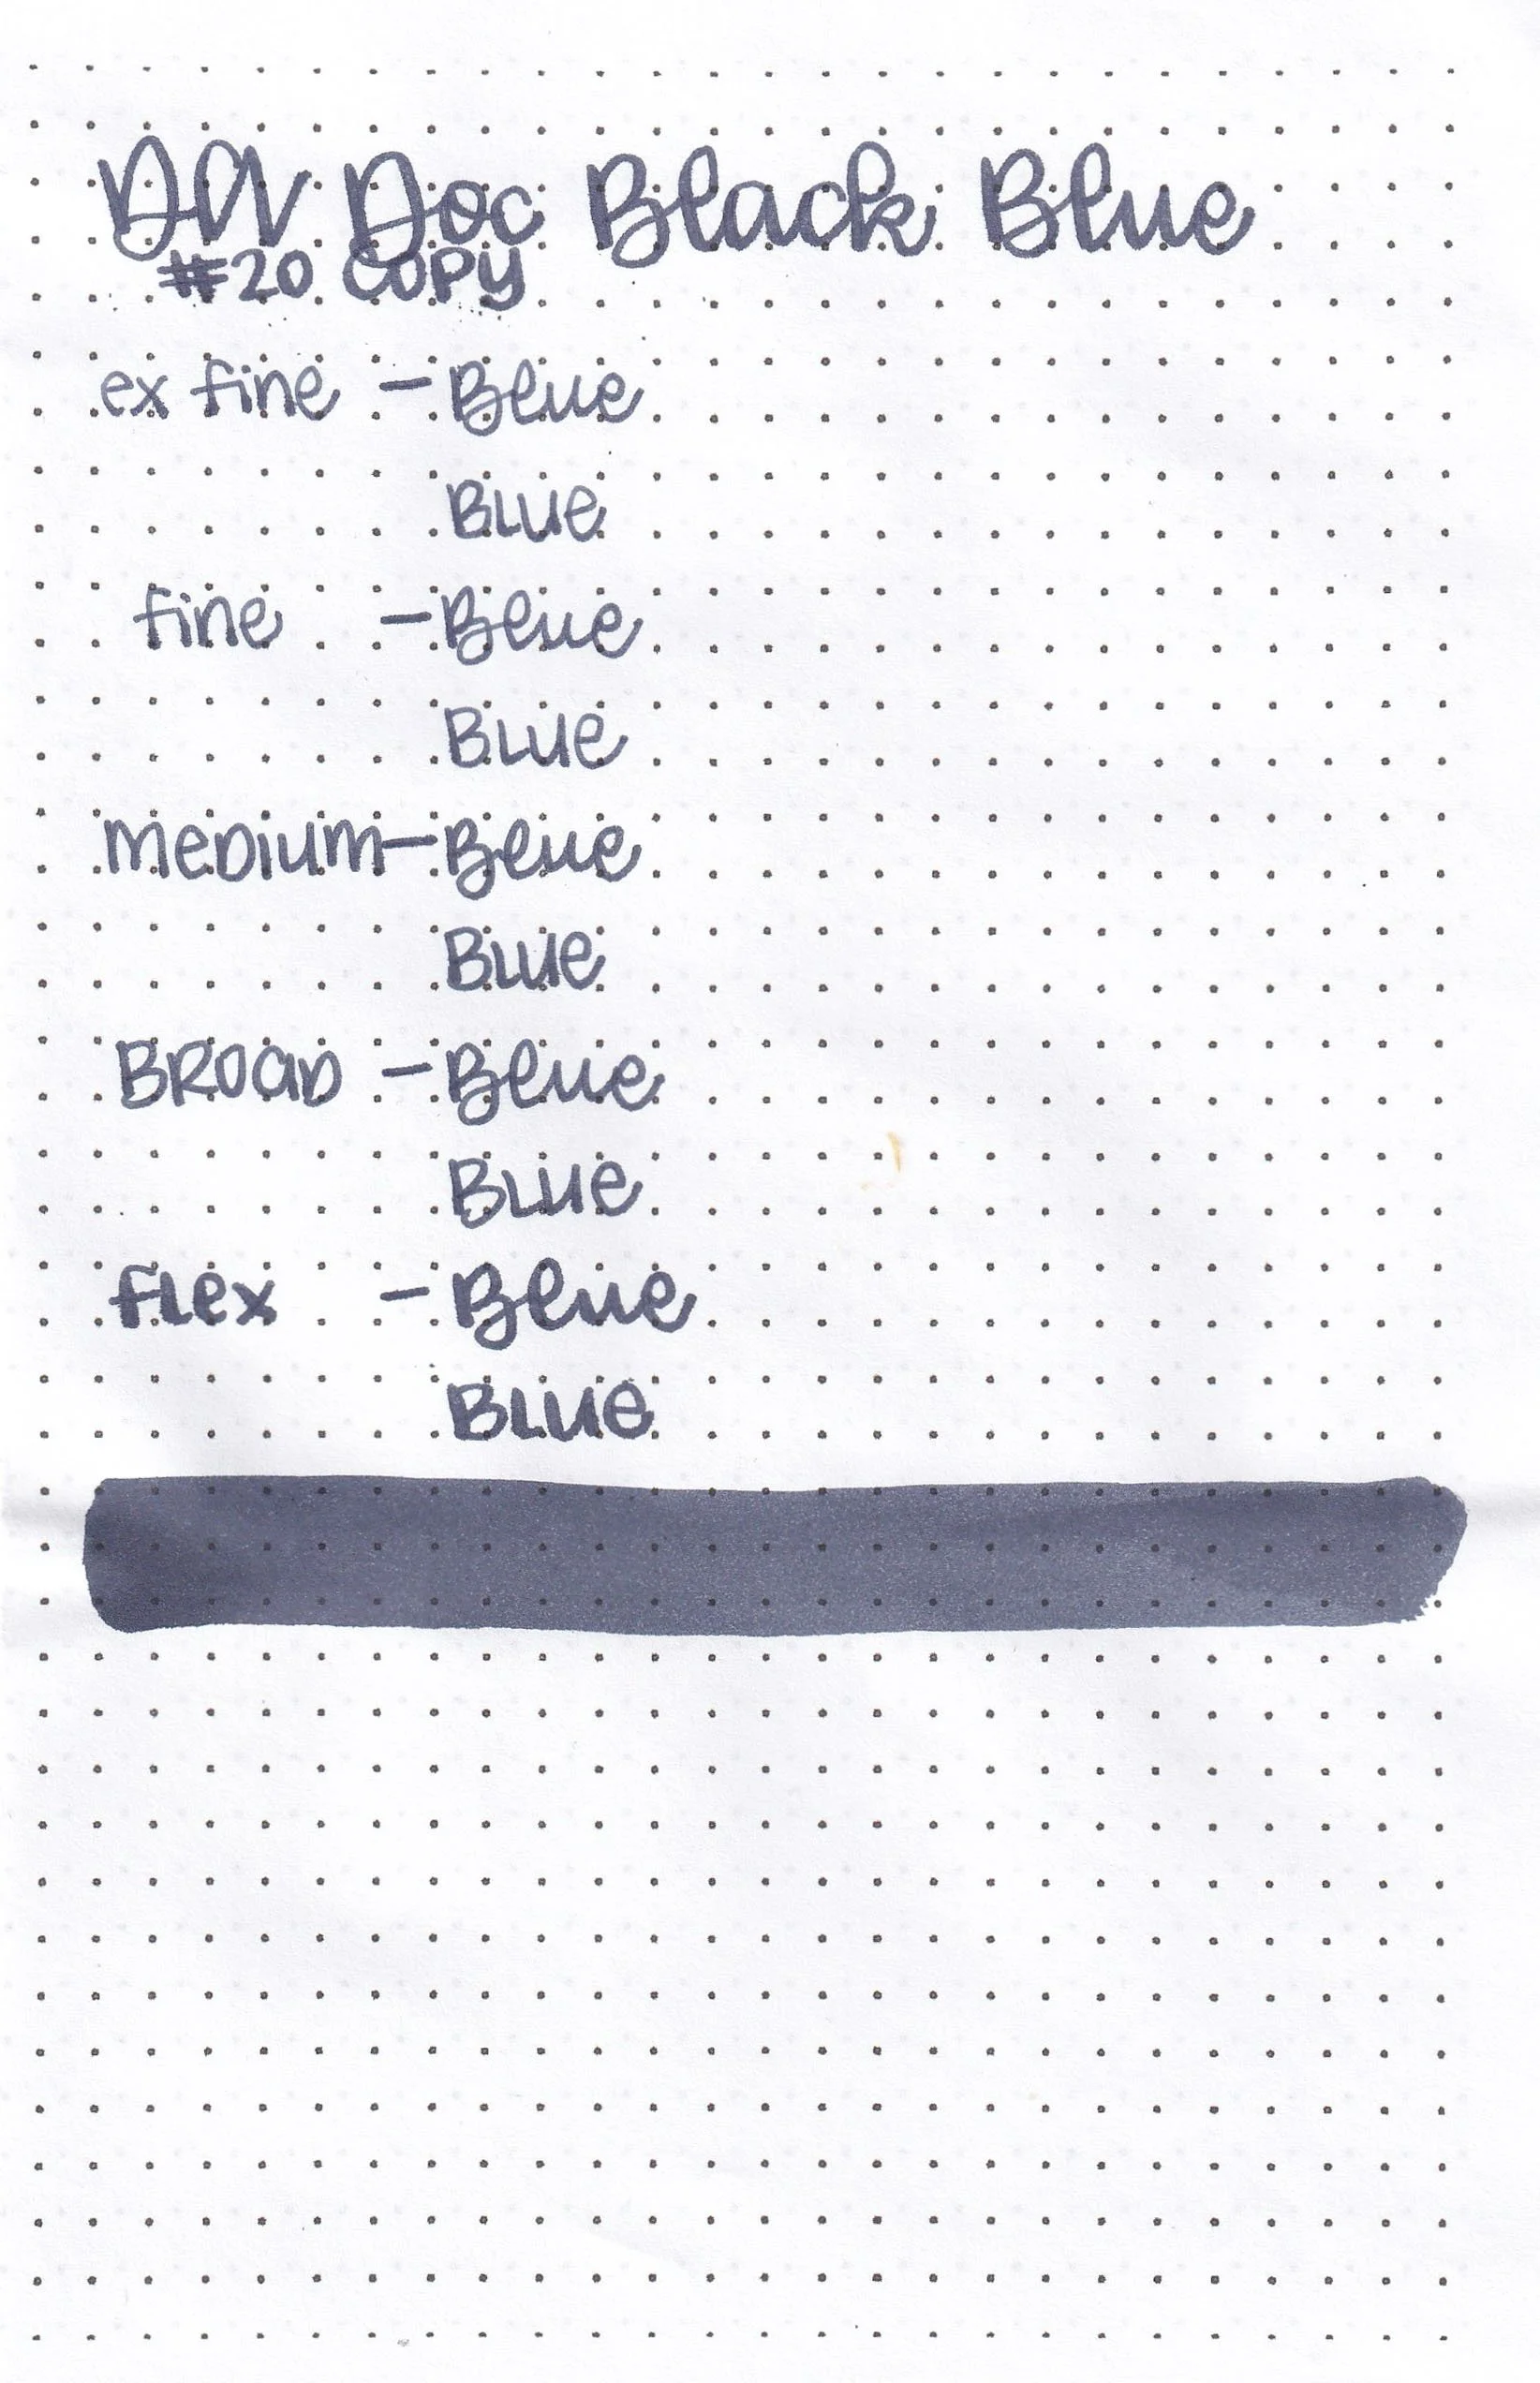 DA Doc Black Blue
#20 COPY
ex fine - Blue
BLUE
fine - Blue
BLUE
MEDIUM - Blue
BLUE
BROAD - Blue
BLUE
FLEX - Blue
BLUE